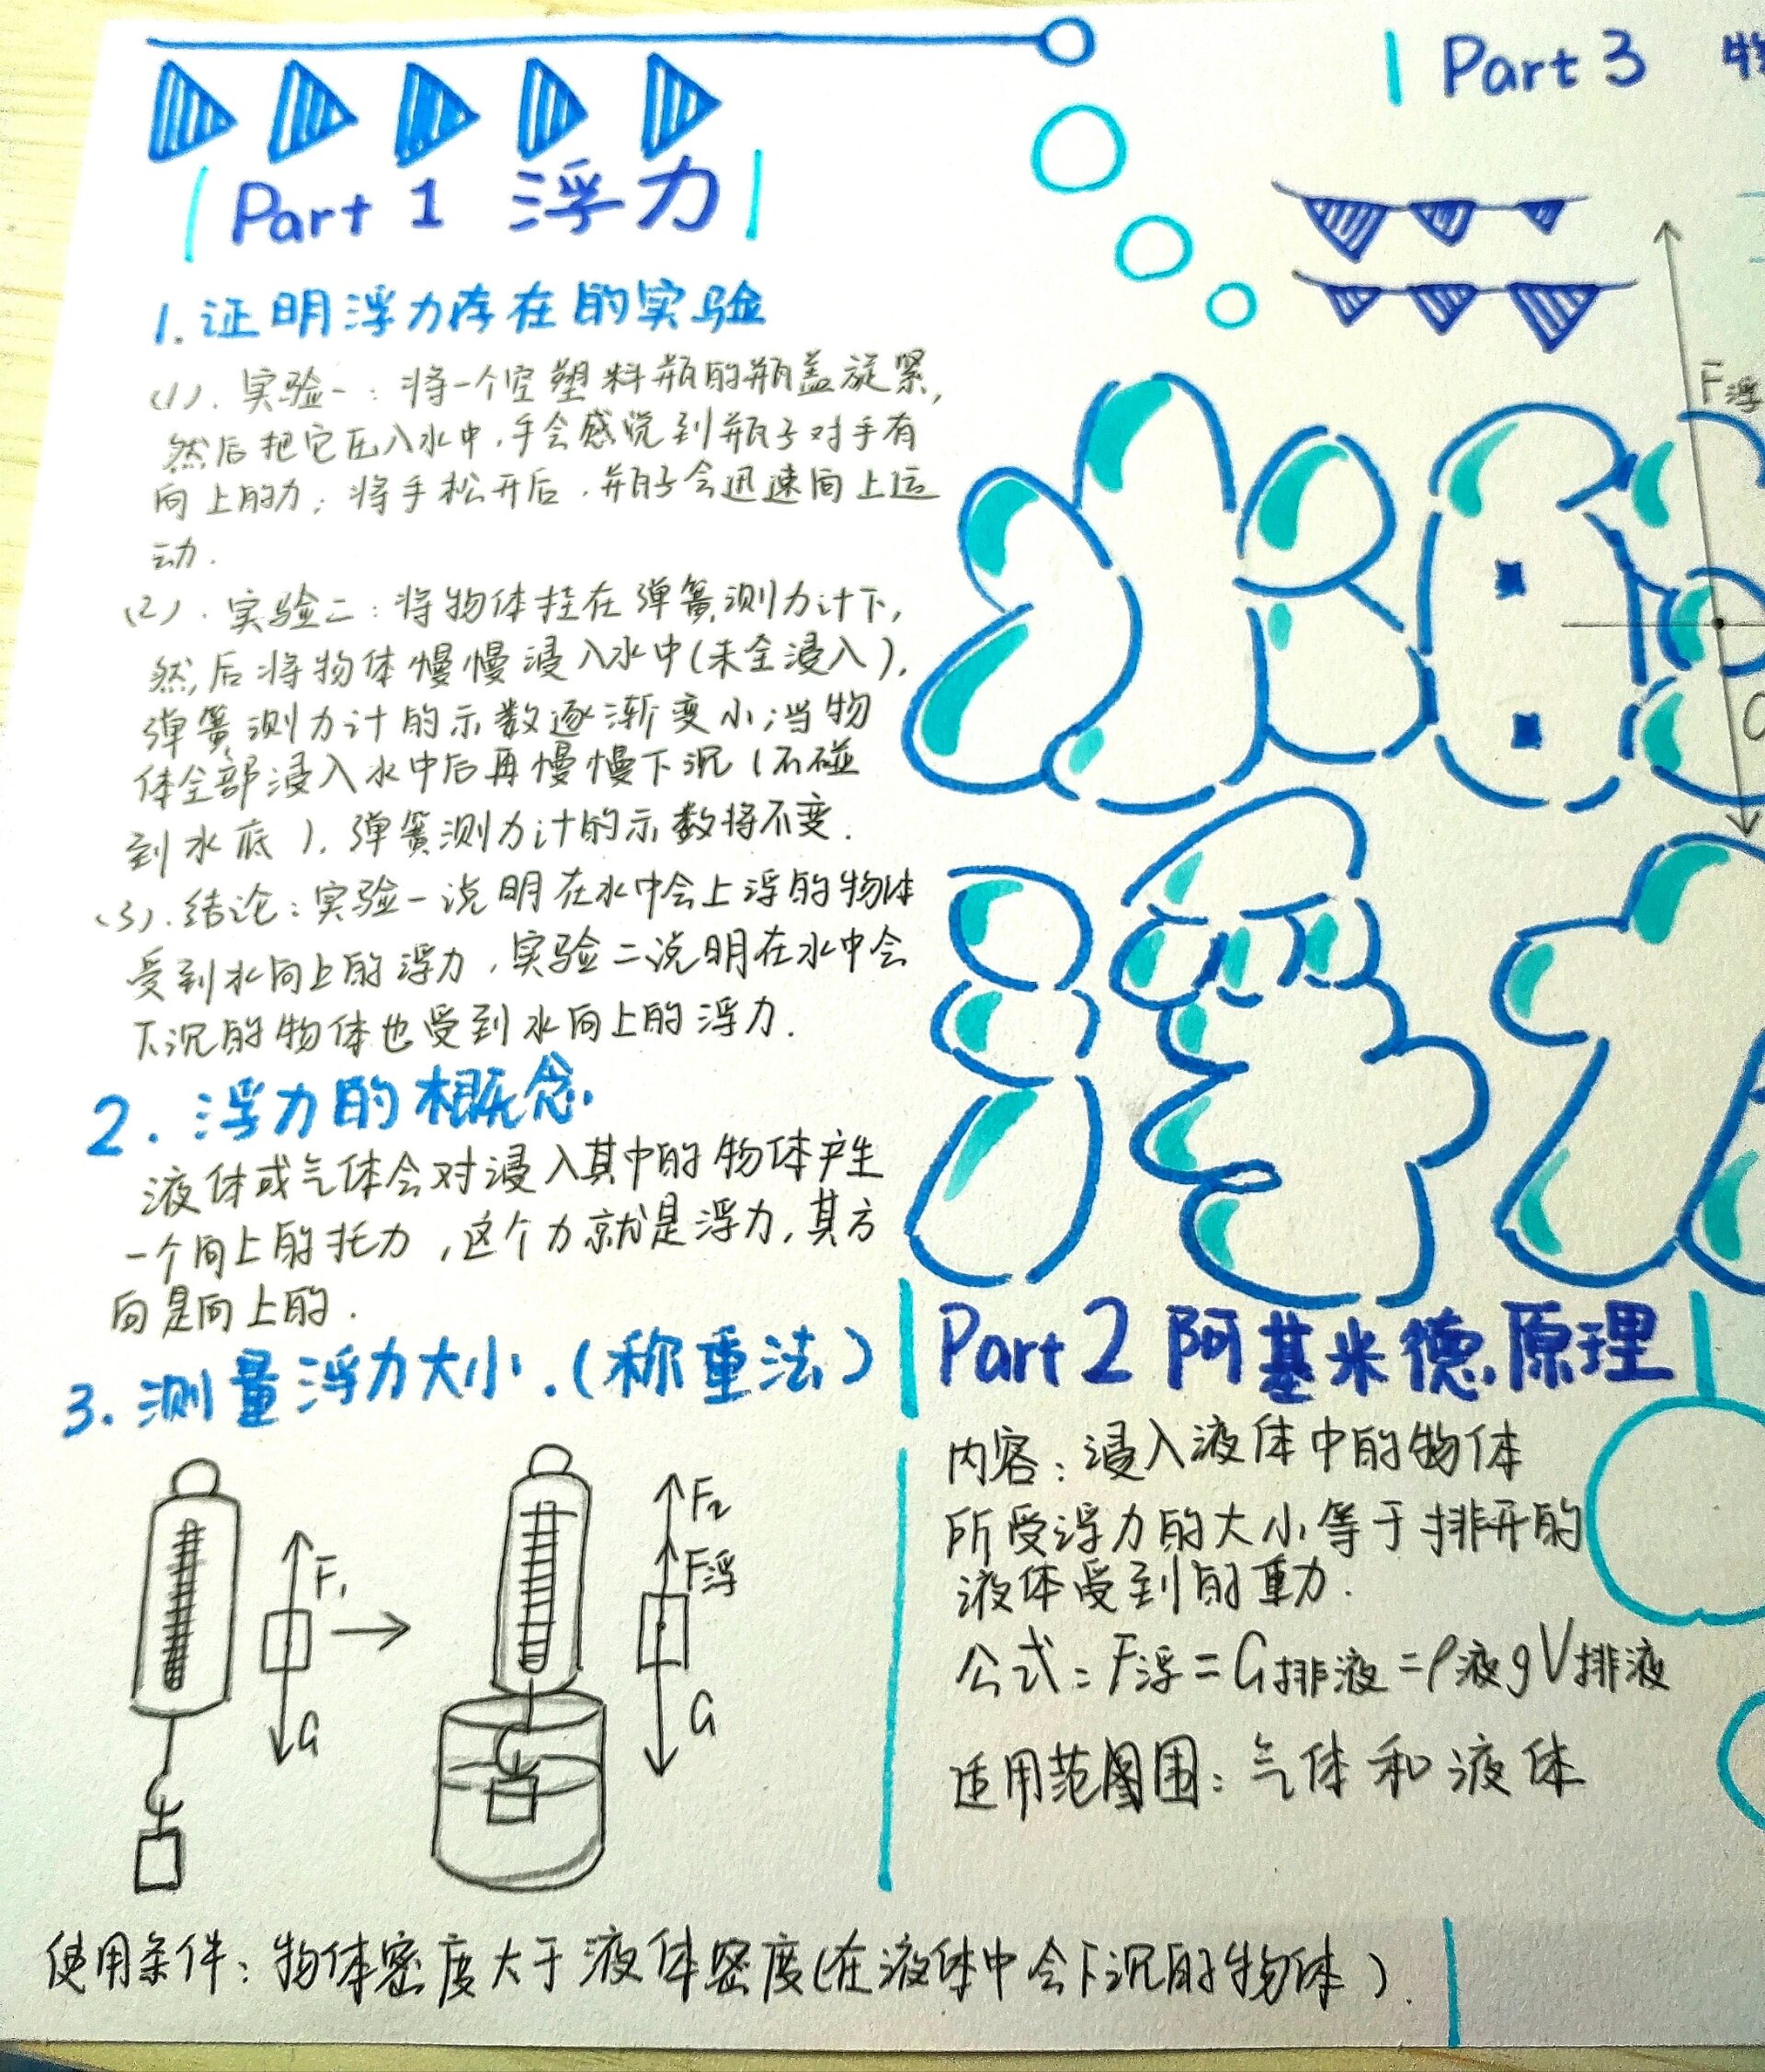 Part 1 浮力
1. 证明浮力存在的实验
(1). 实验一：将一个空塑料瓶的瓶盖旋紧，
然后把它压入水中，手会感觉到瓶子对手有
向上的力；将手松开后，瓶子会迅速向上运
动.
(2). 实验二：将物体挂在弹簧测力计下，
然后将物体慢慢浸入水中(未全浸入)，
弹簧测力计的示数逐渐变小；当物
体全部浸入水中后再慢慢下沉(不碰
到水底)，弹簧测力计的示数将不变.
(3). 结论：实验一说明在水中会上浮的物体
受到水向上的浮力，实验二说明在水中会
下沉的物体也受到水向上的浮力.
2. 浮力的概念.
液体或气体会对浸入其中的物体产生
一个向上的托力，这个力就是浮力，其方
向是向上的.
3. 测量浮力大小.(称重法)
F₁
G
F₂
F浮
G
使用条件：物体密度大于液体密度(在液体中会下沉的物体).
Part 2 阿基米德原理
内容：浸入液体中的物体
所受浮力的大小等于排开的
液体受到的重力.
公式：F浮=G排液=ρ液gV排液
适用范围：气体和液体
Part 3 物
F浮
G